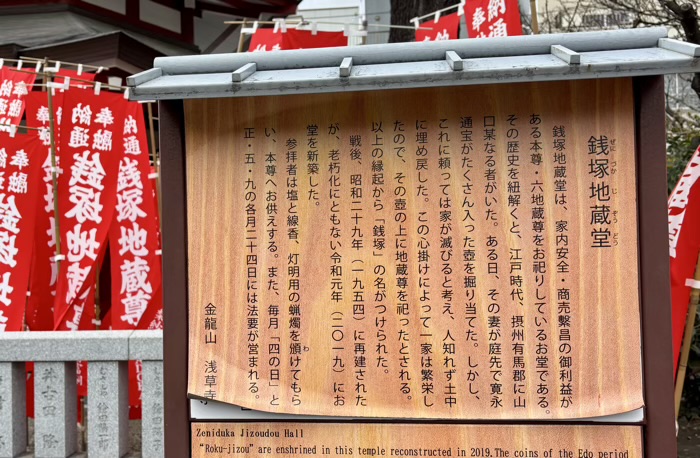 銭塚地蔵堂
ぜに づか じ ぞう どう
銭塚地蔵堂は、家内安全・商売繫昌の御利益が
ある本尊・六地蔵尊をお祀りしているお堂である。
その歴史を紐解くと、江戸時代、摂州有馬郡に山
口某なる者がいた。ある日、その妻が庭先で寛永
通宝がたくさん入った壺を掘り当てた。しかし、
これに頼っては家が滅びると考え、人知れず土中
に埋め戻した。この心掛けによって一家は繁栄し
たので、その壺の上に地蔵尊を祀ったとされる。
以上の縁起から「銭塚」の名がつけられた。
戦後、昭和二十九年（一九五四）に再建された
が、老朽化にともない令和元年（二〇一九）にお
堂を新築した。
参拝者は塩と線香、灯明用の蝋燭を頒けてもら
わ
い、本尊へお供えする。また、毎月「四の日」と
正・五・九の各月二十四日には法要が営まれる。
金龍山 浅草寺
Zeniduka Jizoudou Hall
“Roku-jizou” are enshrined in this temple reconstructed in 2019.The coins of the Edo period
奉納
奉納
融通
銭塚地蔵尊
奉納
融通
銭塚地蔵尊